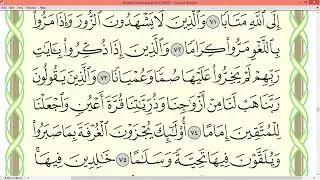 إِلَى ٱللَّهِ مَتَابًا ٧١ وَٱلَّذِينَ لَا يَشْهَدُونَ ٱلزُّورَ وَإِذَا مَرُّوا۟
بِٱللَّغْوِ مَرُّوا۟ كِرَامًا ٧٢ وَٱلَّذِينَ إِذَا ذُكِّرُوا۟ بِـَٔايَـٰتِ
رَبِّهِمْ لَمْ يَخِرُّوا۟ عَلَيْهَا صُمًّا وَعُمْيَانًا ٧٣ وَٱلَّذِينَ يَقُولُونَ
رَبَّنَا هَبْ لَنَا مِنْ أَزْوَٰجِنَا وَذُرِّيَّـٰتِنَا قُرَّةَ أَعْيُنٍ وَٱجْعَلْنَا
لِلْمُتَّقِينَ إِمَامًا ٧٤ أُو۟لَـٰٓئِكَ يُجْزَوْنَ ٱلْغُرْفَةَ بِمَا صَبَرُوا۟
وَيُلَقَّوْنَ فِيهَا تَحِيَّةً وَسَلَـٰمًا ٧٥ خَـٰلِدِينَ فِيهَا ۚ